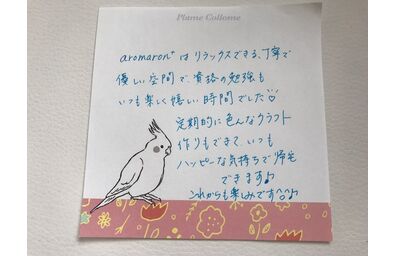 Plume Collome
aromaron+ は リラックスできる、丁寧で
優しい空間で、資格の勉強も
いつも楽しく嬉しい時間でした♡
定期的に色んなクラフト
作りもできて、いつも
ハッピーな気持ちで帰宅
できます♪
これからも楽しみです^^♪